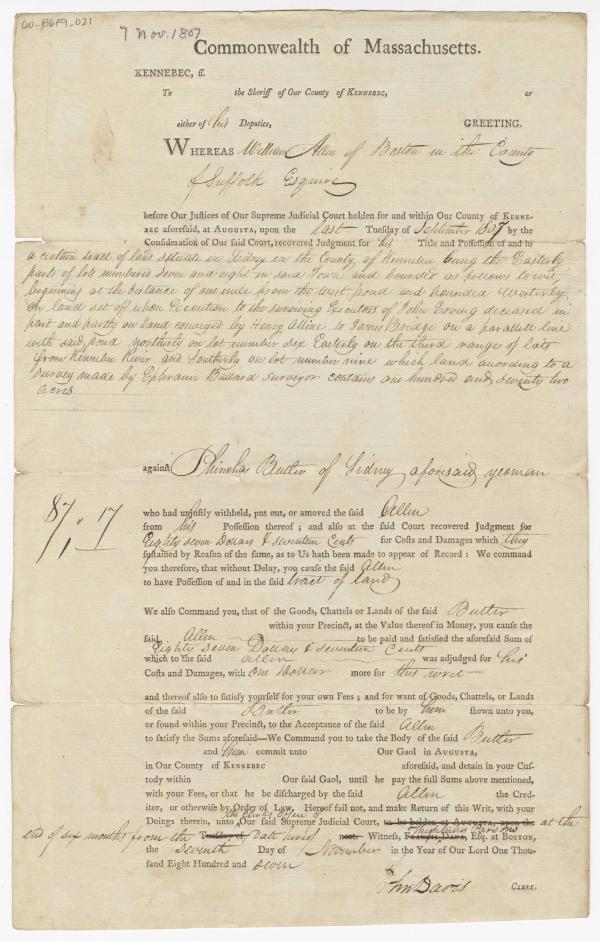 60-86F9-021
7 Nov. 1807
Commonwealth of Massachusetts.
KENNEBEC, ſſ.
To the Sheriff of Our County of KENNEBEC, or
either of his Deputies, GREETING.
WHEREAS William Allen of Boston in the County
of Suffolk Esquire
before Our Juſtices of Our Supreme Judicial Court holden for and within Our County of KENNE-
BEC aforeſaid, at AUGUSTA, upon the last Tueſday of September 1807 by the
Conſideration of Our ſaid Court, recovered Judgment for his Title and Poſſeſſion of and in
a certain tract of land situate in Sidney in the County of Kennebec being the Easterly
parts of lots numbered seven and eight in said Town and bounded as follows to wit,
beginning at the distance of one mile from the west pond and bounded Westerly
on land set off upon Execution to the surviving Executors of John Ewing deceased in
part and partly on land conveyed by Henry Alline to Davis Bridge on a parallel line
with said pond northerly on lot number six Easterly on the third range of lots
from Kennebec River and Southerly on lot number nine which land according to a
survey made by Ephraim Ballard surveyor contains one hundred and seventy two
acres
against Phinehas Butler of Sidney aforesaid yeoman
87,17
who had unjuſtly withheld, put out, or amoved the ſaid Allen
from his Poſſeſſion thereof; and alſo at the ſaid Court recovered Judgment for
Eighty seven Dollars & seventeen Cents for Coſts and Damages which they
ſuſtained by Reaſon of the ſame, as to Us hath been made to appear of Record: We command
you therefore, that without Delay, you cauſe the ſaid Allen
to have Poſſeſſion of and in the ſaid tract of land
We alſo Command you, that of the Goods, Chattels or Lands of the ſaid Butler
within your Precinct, at the Value thereof in Money, you cauſe the
ſaid Allen to be paid and ſatisfied the aforeſaid Sum of
Eighty seven Dollars & seventeen Cents
which to the ſaid Allen was adjudged for his
Coſts and Damages, with one Dollar more for this writ
and thereof alſo to ſatisfy yourſelf for your own Fees; and for want of Goods, Chattels, or Lands
of the ſaid Butler to be by him ſhewn unto you,
or found within your Precinct, to the Acceptance of the ſaid Allen
to ſatisfy the Sums aforeſaid—We Command you to take the Body of the ſaid Butler
and him commit unto Our Gaol in AUGUSTA,
in Our County of KENNEBEC aforeſaid, and detain in your Cuſ-
tody within Our ſaid Gaol, until he pay the full Sums above mentioned,
with your Fees, or that he be diſcharged by the ſaid Allen the Cred-
itor, or otherwiſe by Order of Law. Hereof fail not, and make Return of this Writ, with your
the Clerks Office of
Doings therein, unto Our ſaid Supreme Judicial Court, to be holden at AUGUSTA, upon the at the
Theophilus Parsons
end of six months from the Tueſday of Date hereof next. Witneſs, FRANCIS DANA, Eſq. at BOSTON,
the seventh Day of November in the Year of Our Lord One Thou-
ſand Eight Hundred and seven
John Davis CLERK.